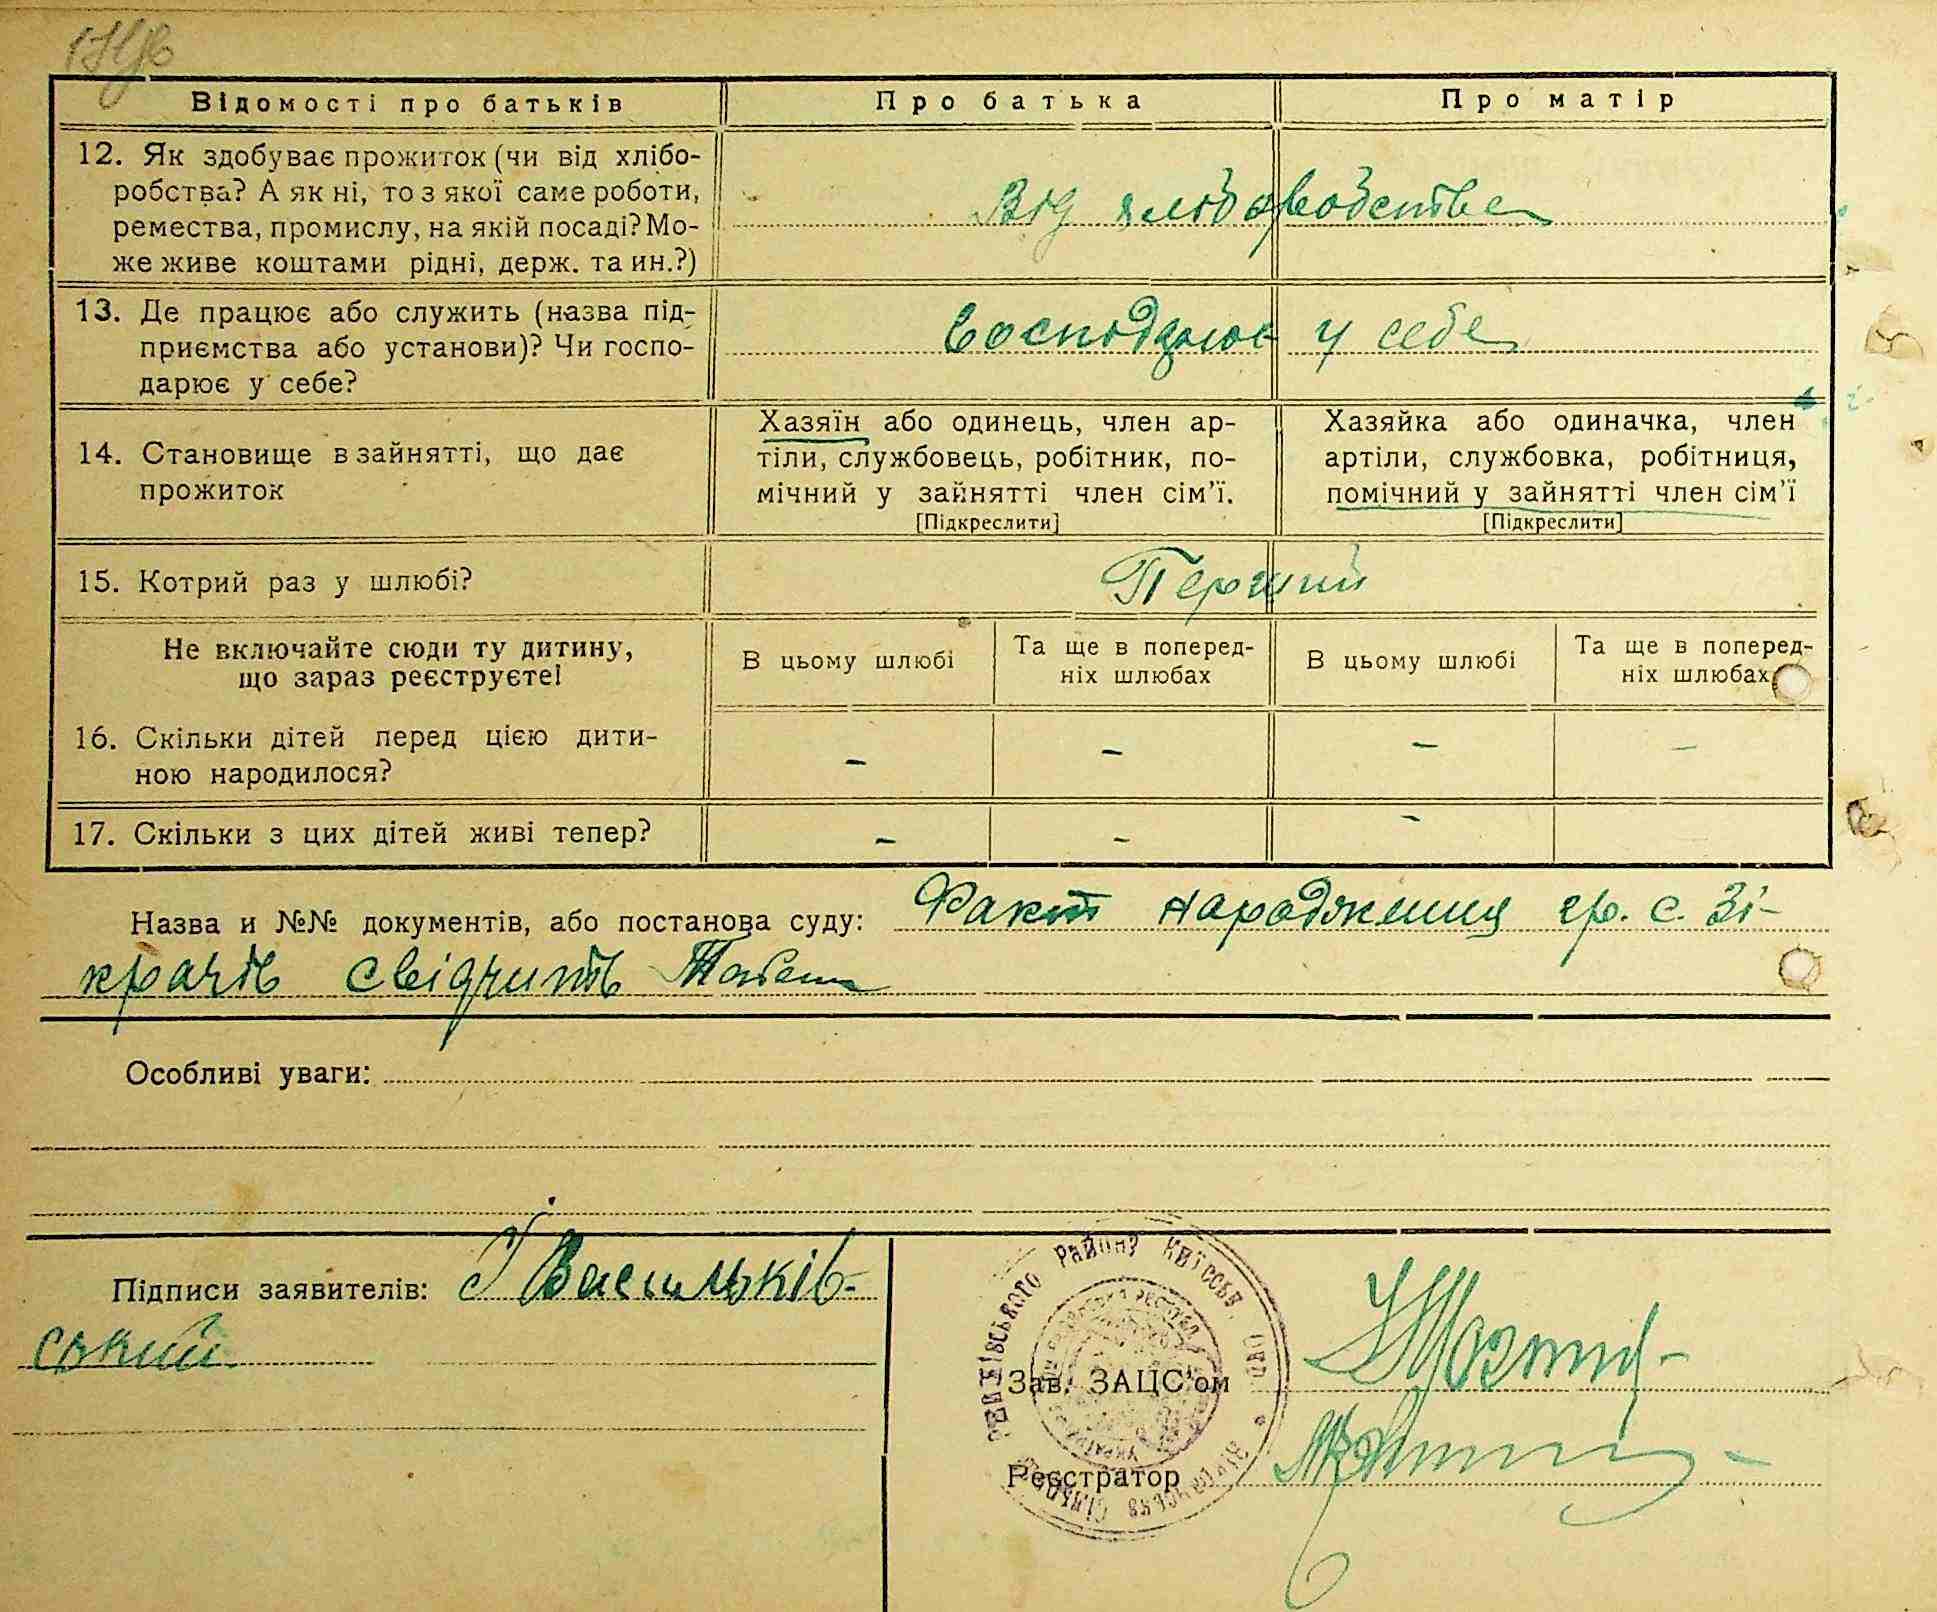 Відомості про батьків
Про батька
Про матір
12. Як здобуває прожиток (чи від хлібо-
робства? А як ні, то з якої саме роботи,
ремества, промислу, на якій посаді? Мо-
же живе коштами рідні, держ. та ин.?)
Від
13. Де працює або служить (назва під-
приємства або установи)? Чи госпо-
дарює у себе?
у себе
14. Становище в зайнятті, що дає
прожиток
Хазяїн або одинець, член ар-
тіли, службовець, робітник, по-
мічний у зайнятті член сім'ї.
[Підкреслити]
Хазяйка або одиначка, член
артіли, службовка, робітниця,
помічний у зайнятті член сім'ї
[Підкреслити]
15. Котрий раз у шлюбі?
Перший
Не включайте сюди ту дитину,
що зараз реєструєте!
В цьому шлюбі
Та ще в поперед-
ніх шлюбах
В цьому шлюбі
Та ще в поперед-
ніх шлюбах
16. Скільки дітей перед цією дити-
ною народилося?
– – – –
17. Скільки з цих дітей живі тепер?
– – –
Назва и №№ документів, або постанова суду: Факт народження гр. с. Зі-
крачів свідчить
Особливі уваги:
Підписи заявителів: І Васильків-
ський
РАЙОНУ КИЇВСЬК. ОКР.
Зав. ЗАЦС'ом
Реєстратор